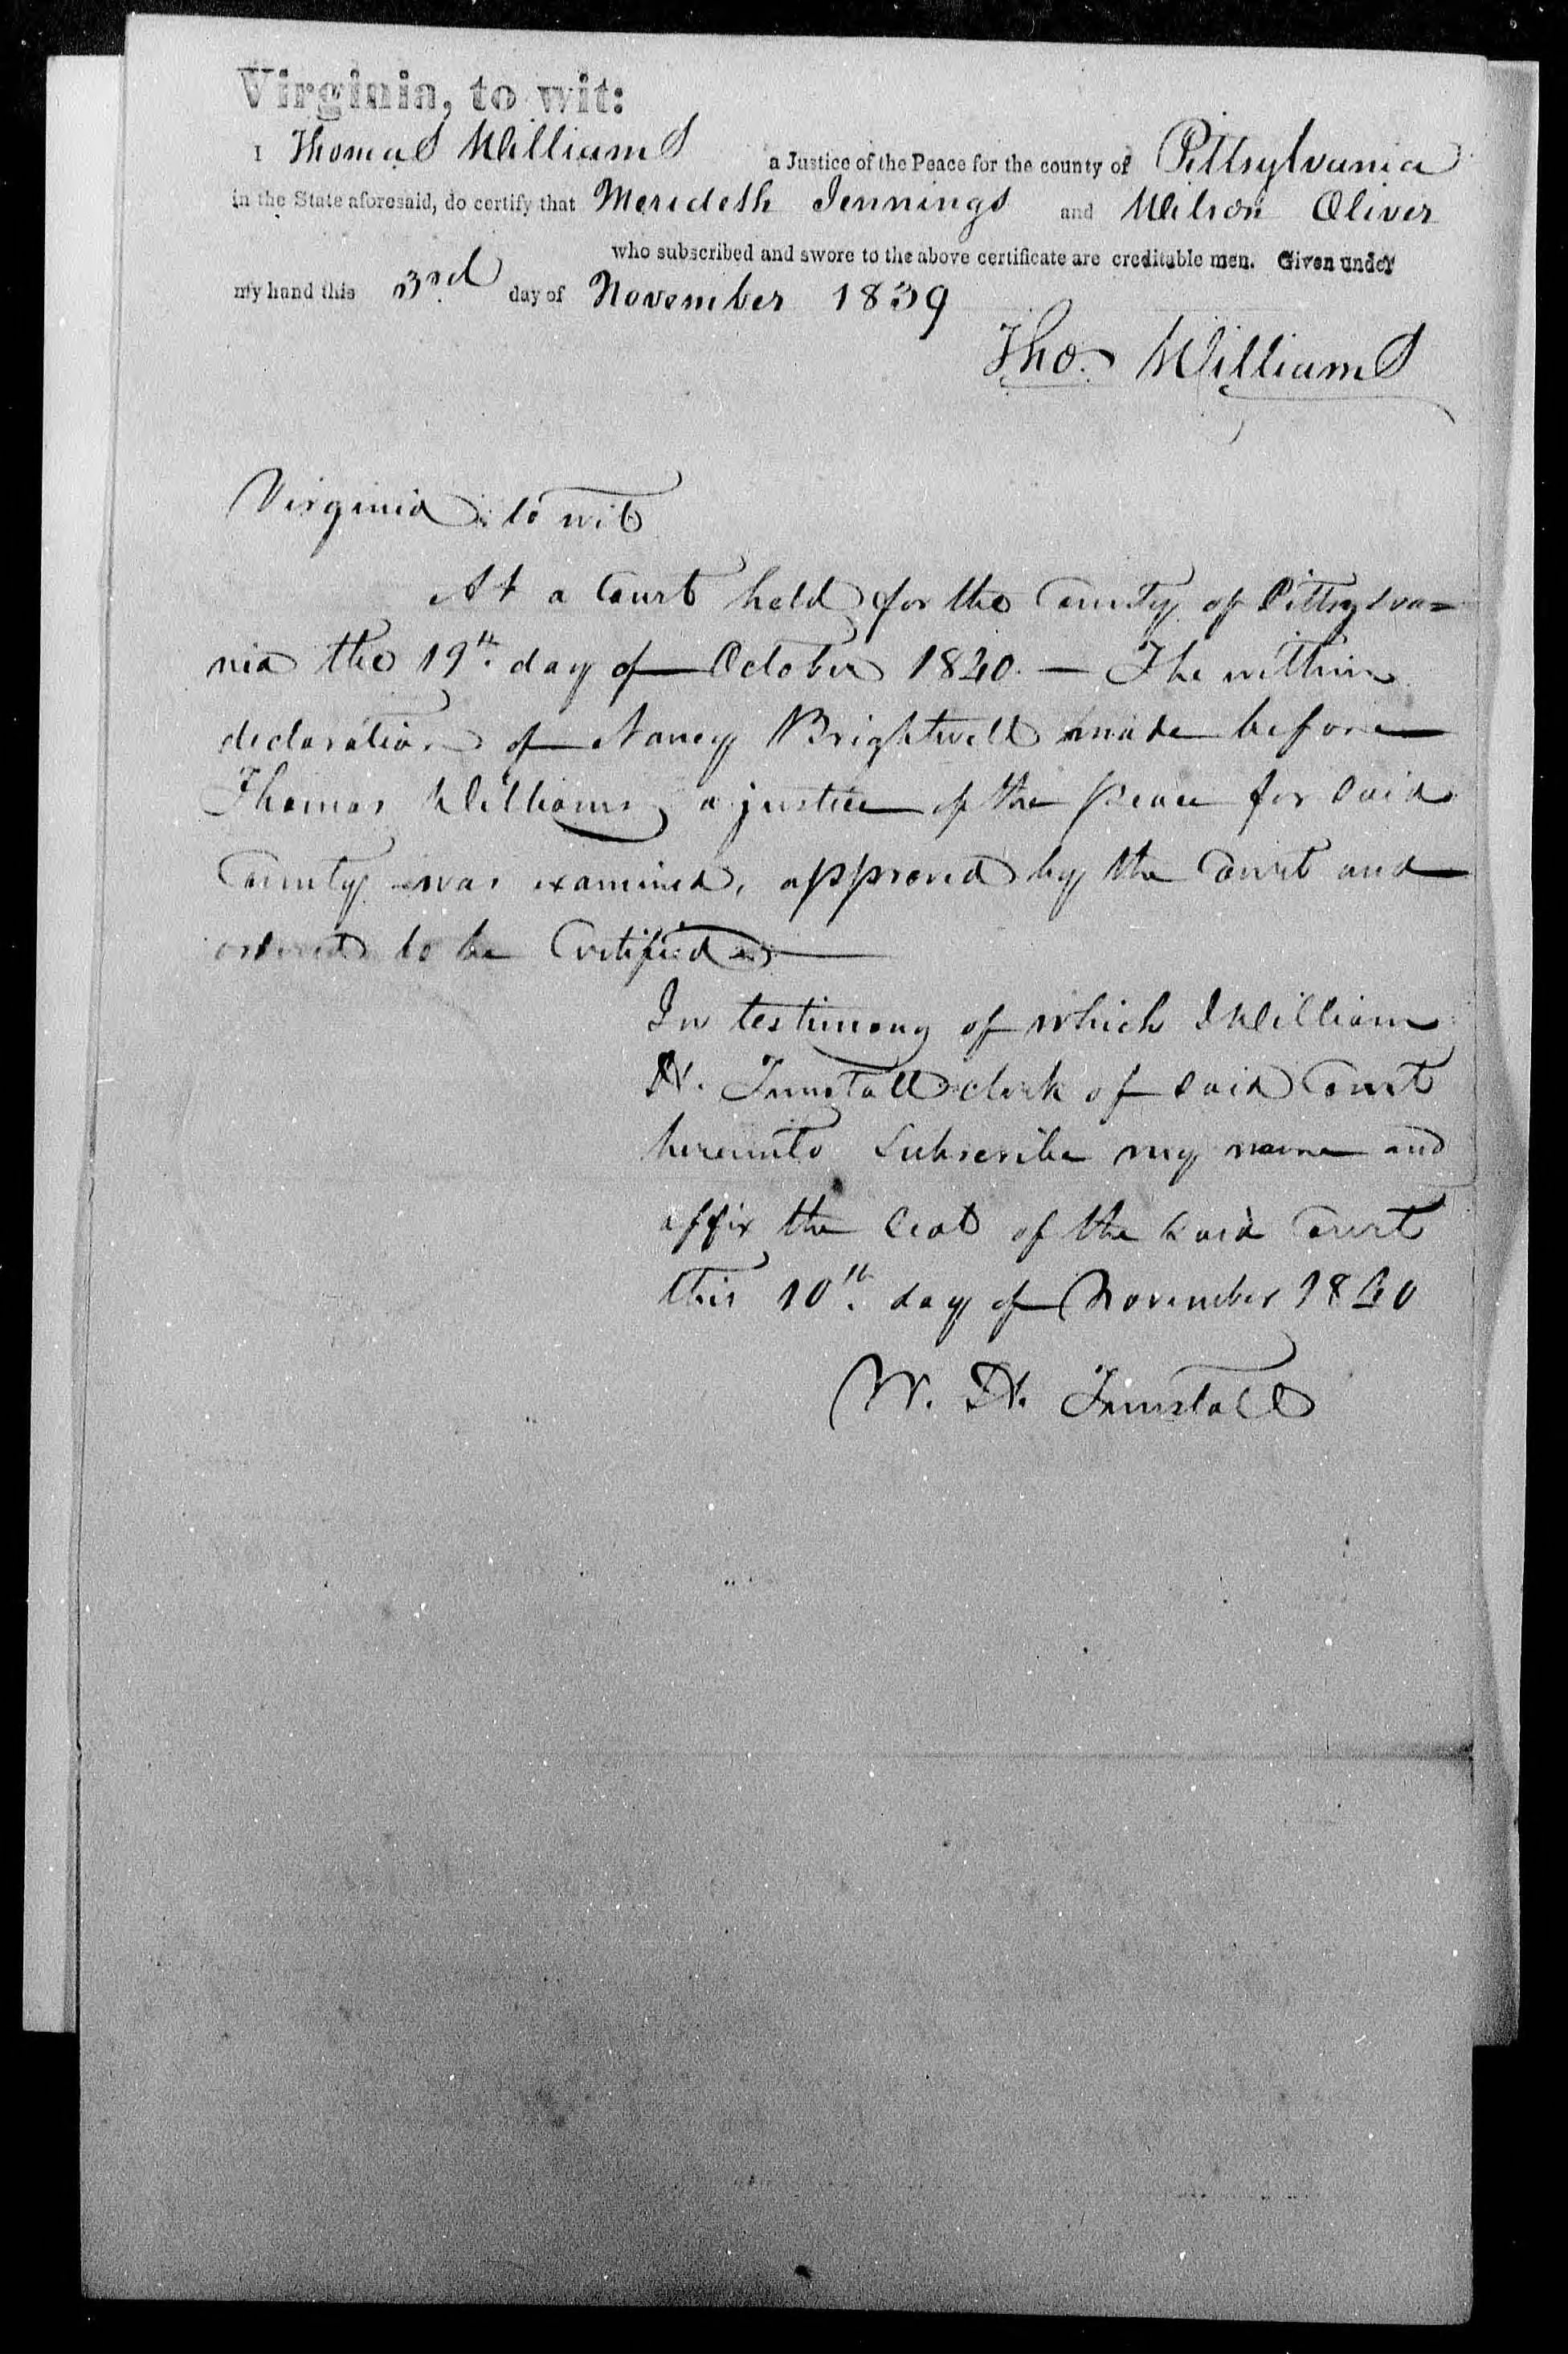 Virginia, to wit:
I Thomas Williams a Justice of the Peace for the county of Pittsylvania
in the State aforesaid, do certify that Merideth Jennings and Wilson Oliver
who subscribed and swore to the above certificate are creditable men. Given under
my hand this 3rd day of November 1839
Tho. Williams
Virginia to wit
At a Court held for the County of Pittsylva=
nia the 19th day of October 1840. — The within
declaration of Nancy Brightwell made before
Thomas Williams a justice of the peace for said
County was examined, approved by the Court and
ordered to be Certified
In testimony of which I William
H. Tunstall clerk of said Court
hereunto Subscribe my name and
affix the Seal of the said Court
this 10th day of November 1840
W. H. Tunstall